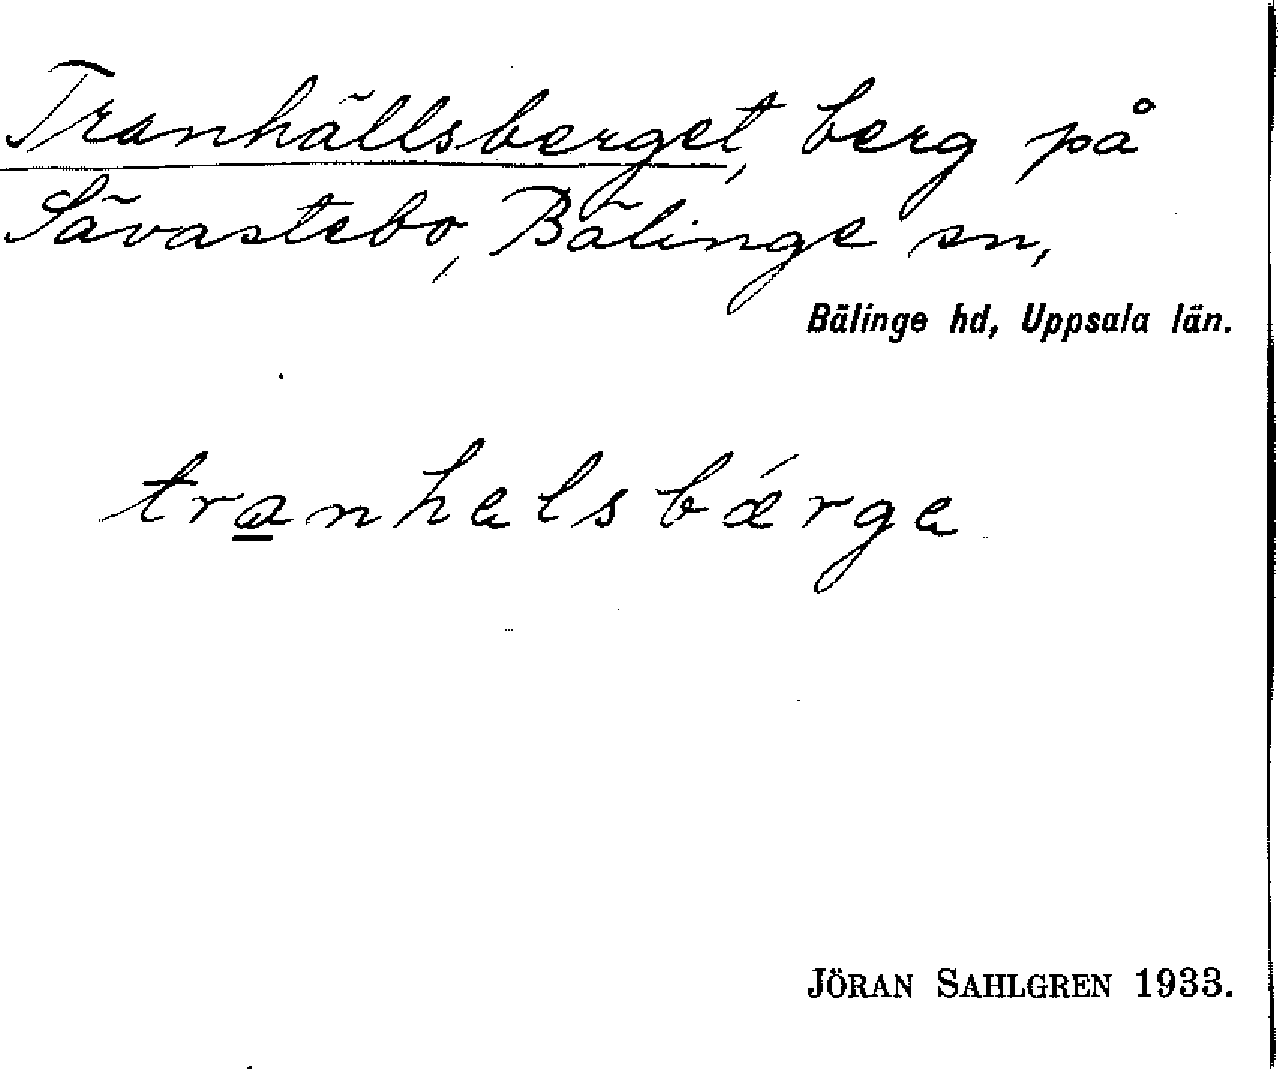 Tranhällsberget, berg på
Sävastebo, Bälinge sn,
Bälinge hd, Uppsala län.
tranhelsbǽrge
JÖRAN SAHLGREN 1933.